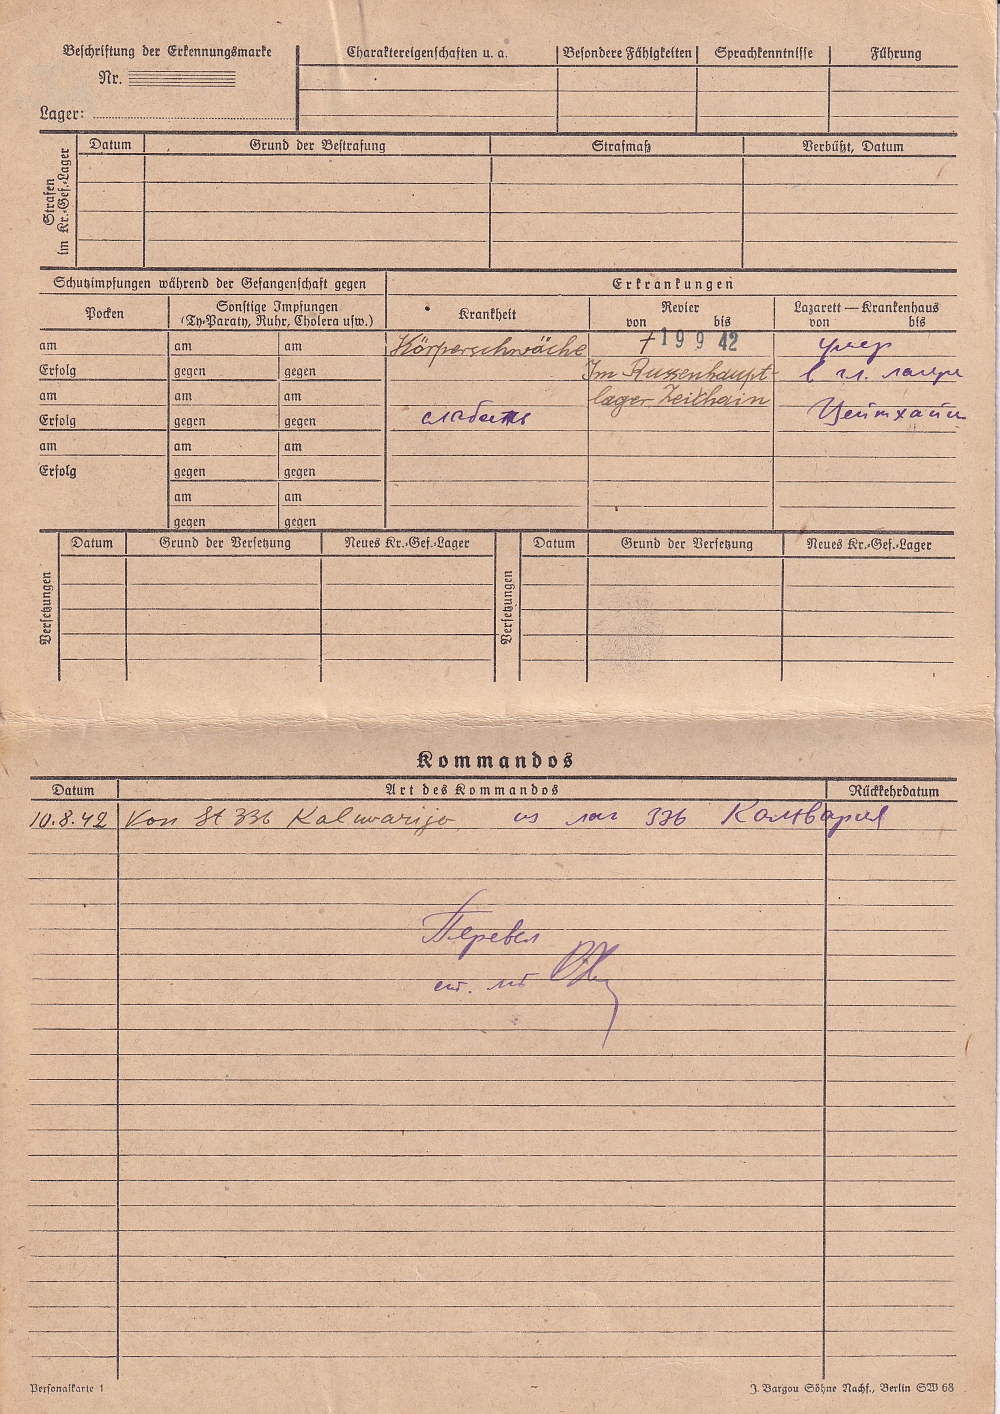 Beschriftung der Erkennungsmarke
Nr.
Lager:
Charaktereigenschaften u. a. Besondere Fähigkeiten Sprachkenntnisse Führung
Strafen im Kr.-Gef.-Lager
Datum Grund der Bestrafung Strafmaß Verbüßt, Datum
Schutzimpfungen während der Gefangenschaft gegen Erkrankungen
Pocken Sonstige Impfungen (Ty-Paraty, Ruhr, Cholera usw.) Krankheit Revier von bis Lazarett — Krankenhaus von bis
am am am Körperschwäche † 19 9 42 умер
Erfolg gegen gegen Im Russenhaupt- в гл. лагере
am am am lager Zeithain
Erfolg gegen gegen слабость Цейтхайн
am am am
Erfolg gegen gegen
am am
gegen gegen
Versetzungen
Datum Grund der Versetzung Neues Kr.-Gef.-Lager
Versetzungen
Datum Grund der Versetzung Neues Kr.-Gef.-Lager
Kommandos
Datum Art des Kommandos Rückkehrdatum
10.8.42 Von St 336 Kalwarija из лаг 336 Кальвария
Перевел
J. Bargou Söhne Nachf., Berlin SW 68
Personalkarte 1